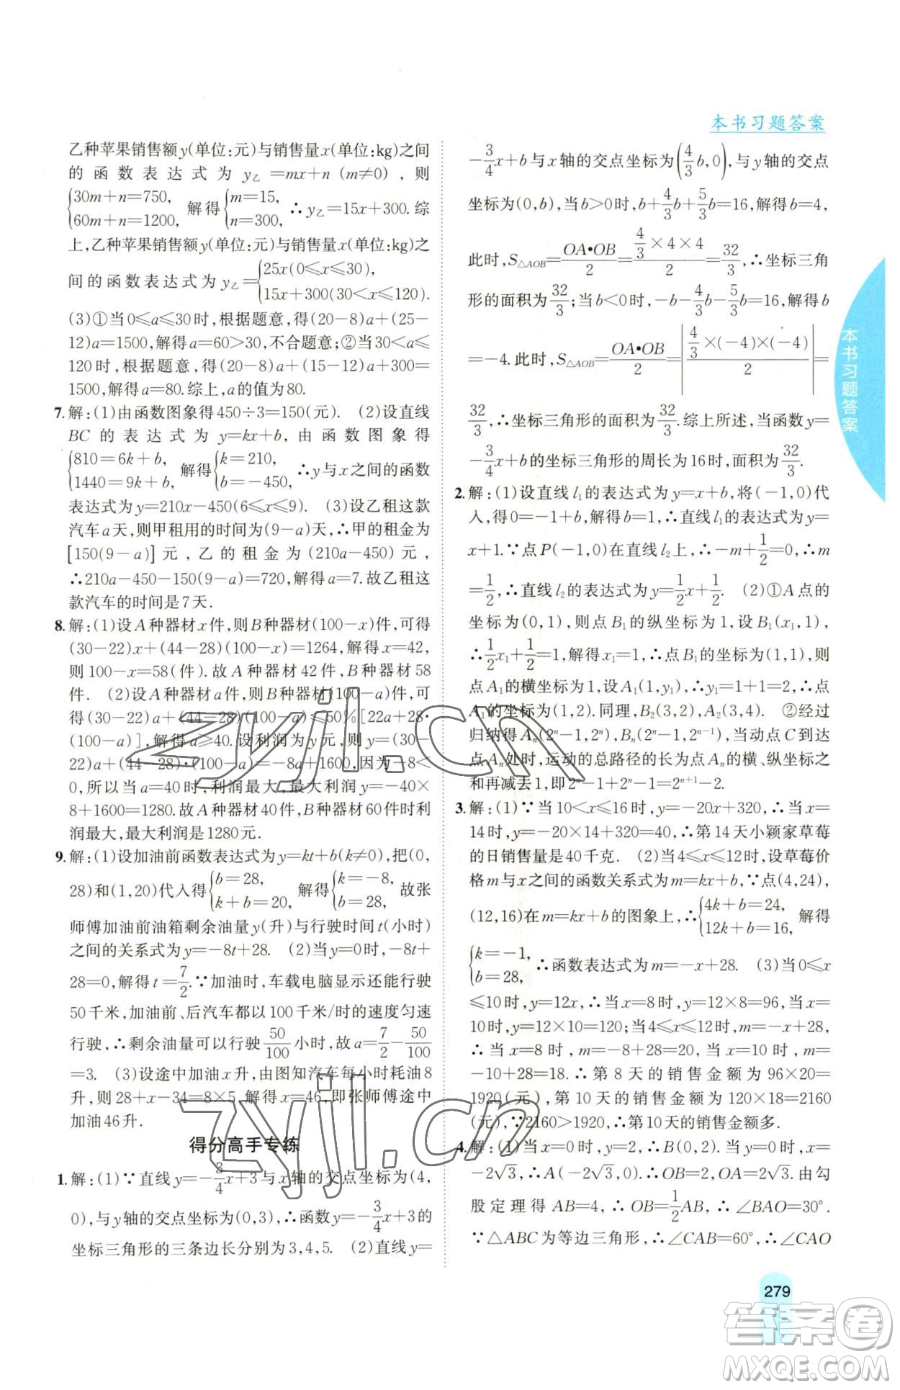 本书习题答案
乙种苹果销售额y(单位:元)与销售量x(单位:kg)之间
的函数表达式为 y乙=mx+n (m≠0), 则
{30m+n=750, 60m+n=1200, 解得{m=15, n=300, ∴y乙=15x+300.综
上,乙种苹果销售额y(单位:元)与销售量x(单位:kg)之
间的函数表达式为 y乙={25x(0≤x≤30), 15x+300(30<x≤120).
(3)①当0≤a≤30时,根据题意,得(20-8)a+(25-
12)a=1500,解得a=60>30,不合题意;②当30<a≤
120时,根据题意,得(20-8)a+(15-12)a+300=
1500,解得a=80.综上,a的值为80.
7.解:(1)由函数图象得450÷3=150(元). (2)设直线
BC 的表达式为 y=kx+b, 由函数图象得
{810=6k+b, 1440=9k+b, 解得{k=210, b=-450, ∴y与x之间的函数
表达式为y=210x-450(6≤x≤9). (3)设乙租这款
汽车a天,则甲租用的时间为(9-a)天,∴甲的租金为
[150(9-a)]元,乙的租金为(210a-450)元,
∴210a-450-150(9-a)=720,解得a=7.故乙租这
款汽车的时间是7天.
8.解:(1)设A种器材x件,则B种器材(100-x)件,可得
(30-22)x+(44-28)(100-x)=1264,解得x=42,
则100-x=58(件).故A种器材42件,B种器材58
件. (2)设A种器材a件,则B种器材(100-a)件,可得
(30-22)a+(44-28)(100-a)≤50%[22a+28·
(100-a)],解得a≥40.设利润为w元,则w=(30-
22)a+(44-28)(100-a)=-8a+1600,因为-8<
0,w随a的增大而减小,当a=40时,利润最大,为-40×
8+1600=1280.故A种器材40件,B种器材60件时利
润最大,最大利润是1280元.
9.解:(1)设加油前函数表达式为y=kt+b(k≠0),把(0,
28)和(1,20)代入得{b=28, k+b=20, 解得{k=-8, b=28, 故张
师傅加油前油箱剩余油量y(升)与行驶时间t(小时)
之间的关系式为y=-8t+28. (2)当y=0时,-8t+
28=0,解得t=7/2.∵加油时,车载电脑显示还能行驶
50千米,加油前、后汽车都以100千米/时的速度匀速
行驶,∴剩余油量可行驶50/100小时,故a=7/2-50/100
=3. (3)设途中加油x升,由图知汽车每小时耗油8
升,则28+x-34=8×5,解得x=46,即张师傅途中
加油46升.
得分高手专练
1.解:(1)∵直线y=-3/4x+3与x轴的交点坐标为(4,
0),与y轴的交点坐标为(0,3),∴函数y=-3/4x+3的
坐标三角形的三条边长分别为3,4,5. (2)直线y=
-3/4x+b与x轴的交点坐标为(4/3b,0),与y轴的交点
坐标为(0,b),当b>0时,4/3b+b+5/3b=16,解得b=4,
此时,S△AOB=OA•OB/2=(4/3×4×4)/2=32/3,∴坐标三角
形的面积为32/3;当b<0时,-4/3b-b-5/3b=16,解得b
=-4.此时,S△AOB=OA•OB/2=|4/3×(-4)×(-4)/2|=
32/3,∴坐标三角形的面积为32/3.综上所述,当函数y=
-3/4x+b的坐标三角形的周长为16时,面积为32/3.
2.解:(1)设直线l₁的表达式为y=x+b,将(-1,0)代
入,得0=-1+b,解得b=1,∴直线l₁的表达式为y=
x+1.∵点P(-1,0)在直线l₂上,∴-m+1/2=0,∴m
=1/2,∴直线l₂的表达式为y=1/2x+1/2. (2)①A点的
坐标为(0,1),则点B₁的纵坐标为1,设B₁(x₁,1),
∴1/2x₁+1/2=1,∴x₁=1,∴点B₁的坐标为(1,1),则
点A₁的横坐标为1,设A₁(1,y₁),∴y₁=1+1=2,∴点
A₁的坐标为(1,2).同理,B₂(3,2),A₂(3,4). ②经过
归纳得Aₙ(2ⁿ-1,2ⁿ),Bₙ(2ⁿ-1,2ⁿ⁻¹),当动点C到达
点Aₙ处时,运动的总路径的长为点Aₙ的横、纵坐标之
和再减去1,即2ⁿ-1+2ⁿ-1=2ⁿ⁺¹-2.
3.解:(1)∵当10<x≤16时,y=-20x+320,∴当x=
14时,y=-20×14+320=40,∴第14天小颖家草莓
的日销售量是40千克. (2)当4≤x<12时,设草莓价
格m与x之间的函数关系式为m=kx+b,∵点(4,24),
(12,16)在m=kx+b的图象上,∴{4k+b=24, 12k+b=16, 解得
{k=-1, b=28, ∴函数表达式为m=-x+28. (3)当0≤x
≤10时,y=12x,∴当x=8时,y=12×8=96,当x=
10时,y=12×10=120;当4≤x<12时,m=-x+28,
∴当x=8时,m=-8+28=20,当x=10时,m=-10
+28=18,∴第8天的销售金额为96×20=
1920(元),第10天的销售金额为120×18=2160
(元),∵2160>1920,∴第10天的销售金额多.
4.解:(1)当x=0时,y=2,∴B(0,2),当y=0时,x=
-2√3,∴A(-2√3,0),∴OB=2,OA=2√3.由勾
股定理得AB=4,∴OB=1/2AB,∴∠BAO=30°.
∵△ABC为等边三角形,∴∠CAB=60°,∴∠CAO
本书习题答案
279
zyjl.cn
zyjl.cn
答案圈
MXQE.COM